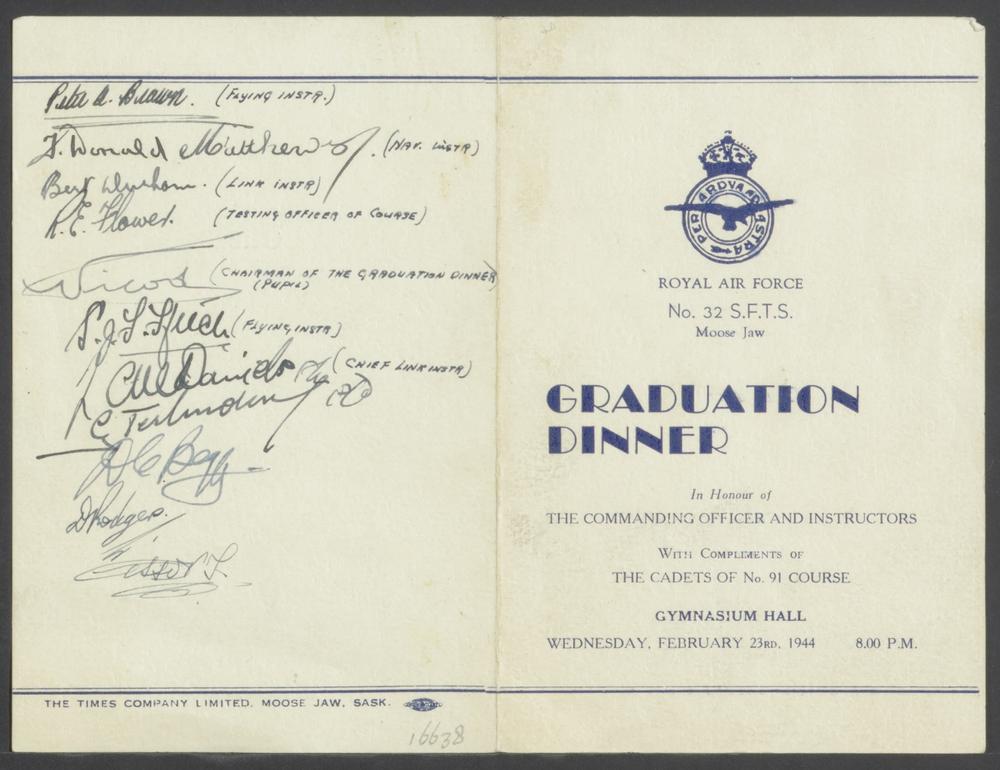 Peter A. Brown. (FLYING INSTR.)
J. Donald Matthews. (NAV. INSTR)
Bert Durham. (LINK INSTR)
R.E. Flower. (TESTING OFFICER OF COURSE)
(CHAIRMAN OF THE GRADUATION DINNER)
(PUPIL)
(FLYING INSTR)
Daniels (CHIEF LINK INSTR)
D C Begg
D Rodgers.
THE TIMES COMPANY LIMITED, MOOSE JAW, SASK.
16638
PER ARDVA AD ASTRA
ROYAL AIR FORCE
No. 32 S.F.T.S.
Moose Jaw
GRADUATION
DINNER
In Honour of
THE COMMANDING OFFICER AND INSTRUCTORS
WITH COMPLIMENTS OF
THE CADETS OF No. 91 COURSE
GYMNASIUM HALL
WEDNESDAY, FEBRUARY 23RD, 1944 8.00 P.M.